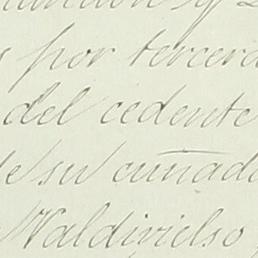 s por tercera
del cedente
de su cuñado
Valdivielso